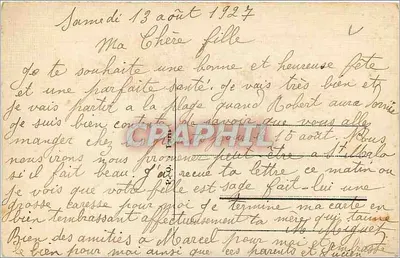 Samedi 13 août 1927
Ma Chère fille
Je te souhaite une bonne et heureuse fête
et une parfaite santé. Je vais très bien et
je vais partir a la plage quand Robert aura
je suis bien de savoir que vous allez
manger chez 15 aout. Vous
nous irons nous promener peut être a St Malo
si il fait beau. J'ai recue ta lettre ce matin ou
je vois que votre fille est sage fait-lui une
grosse caresse pour moi je termine ma carte en
bien t'embrassant affectueusement ta mère qui t'aime
Bien des amitiés a Marcel pour moi et
bien pour moi ainsi que ces parents et
CPAPHIL